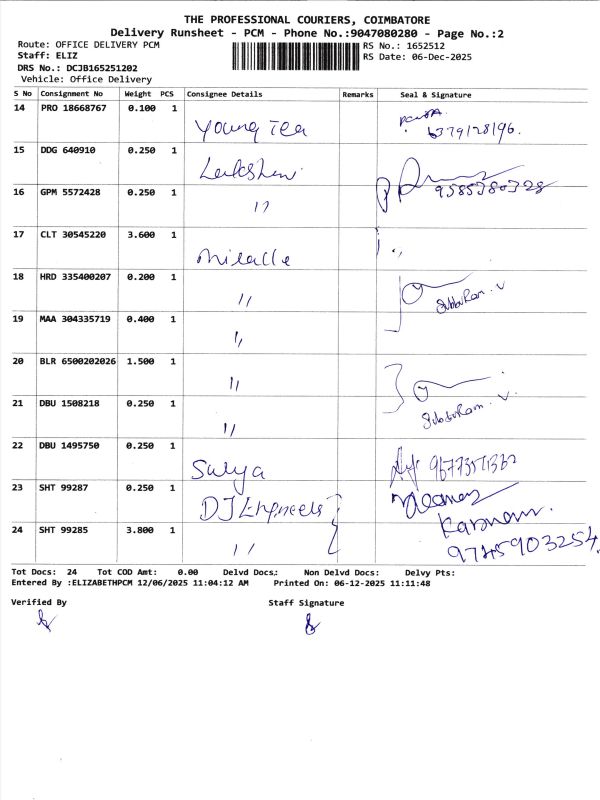 THE PROFESSIONAL COURIERS, COIMBATORE
Delivery Runsheet - PCM - Phone No.:9047080280 - Page No.:2
Route: OFFICE DELIVERY PCM
Staff: ELIZ
DRS No.: DCJB165251202
Vehicle: Office Delivery
RS No.: 1652512
RS Date: 06-Dec-2025
S No Consignment No Weight PCS Consignee Details Remarks Seal & Signature
14 PRO 18668767 0.100 1 Young Tea 6379128196.
15 DDG 640910 0.250 1
16 GPM 5572428 0.250 1 " 9585380328
17 CLT 30545220 3.600 1 Miracle "
18 HRD 335400207 0.200 1 " SubbuRam. V
19 MAA 304335719 0.400 1 "
20 BLR 6500202026 1.500 1 "
21 DBU 1508218 0.250 1 " SubbuRam. V.
22 DBU 1495750 0.250 1 Surya
23 SHT 99287 0.250 1 DJ Engineers
24 SHT 99285 3.800 1 " 9745903254.
Tot Docs: 24 Tot COD Amt: 0.00 Delvd Docs: Non Delvd Docs: Delvy Pts:
Entered By :ELIZABETHPCM 12/06/2025 11:04:12 AM Printed On: 06-12-2025 11:11:48
Verified By Staff Signature